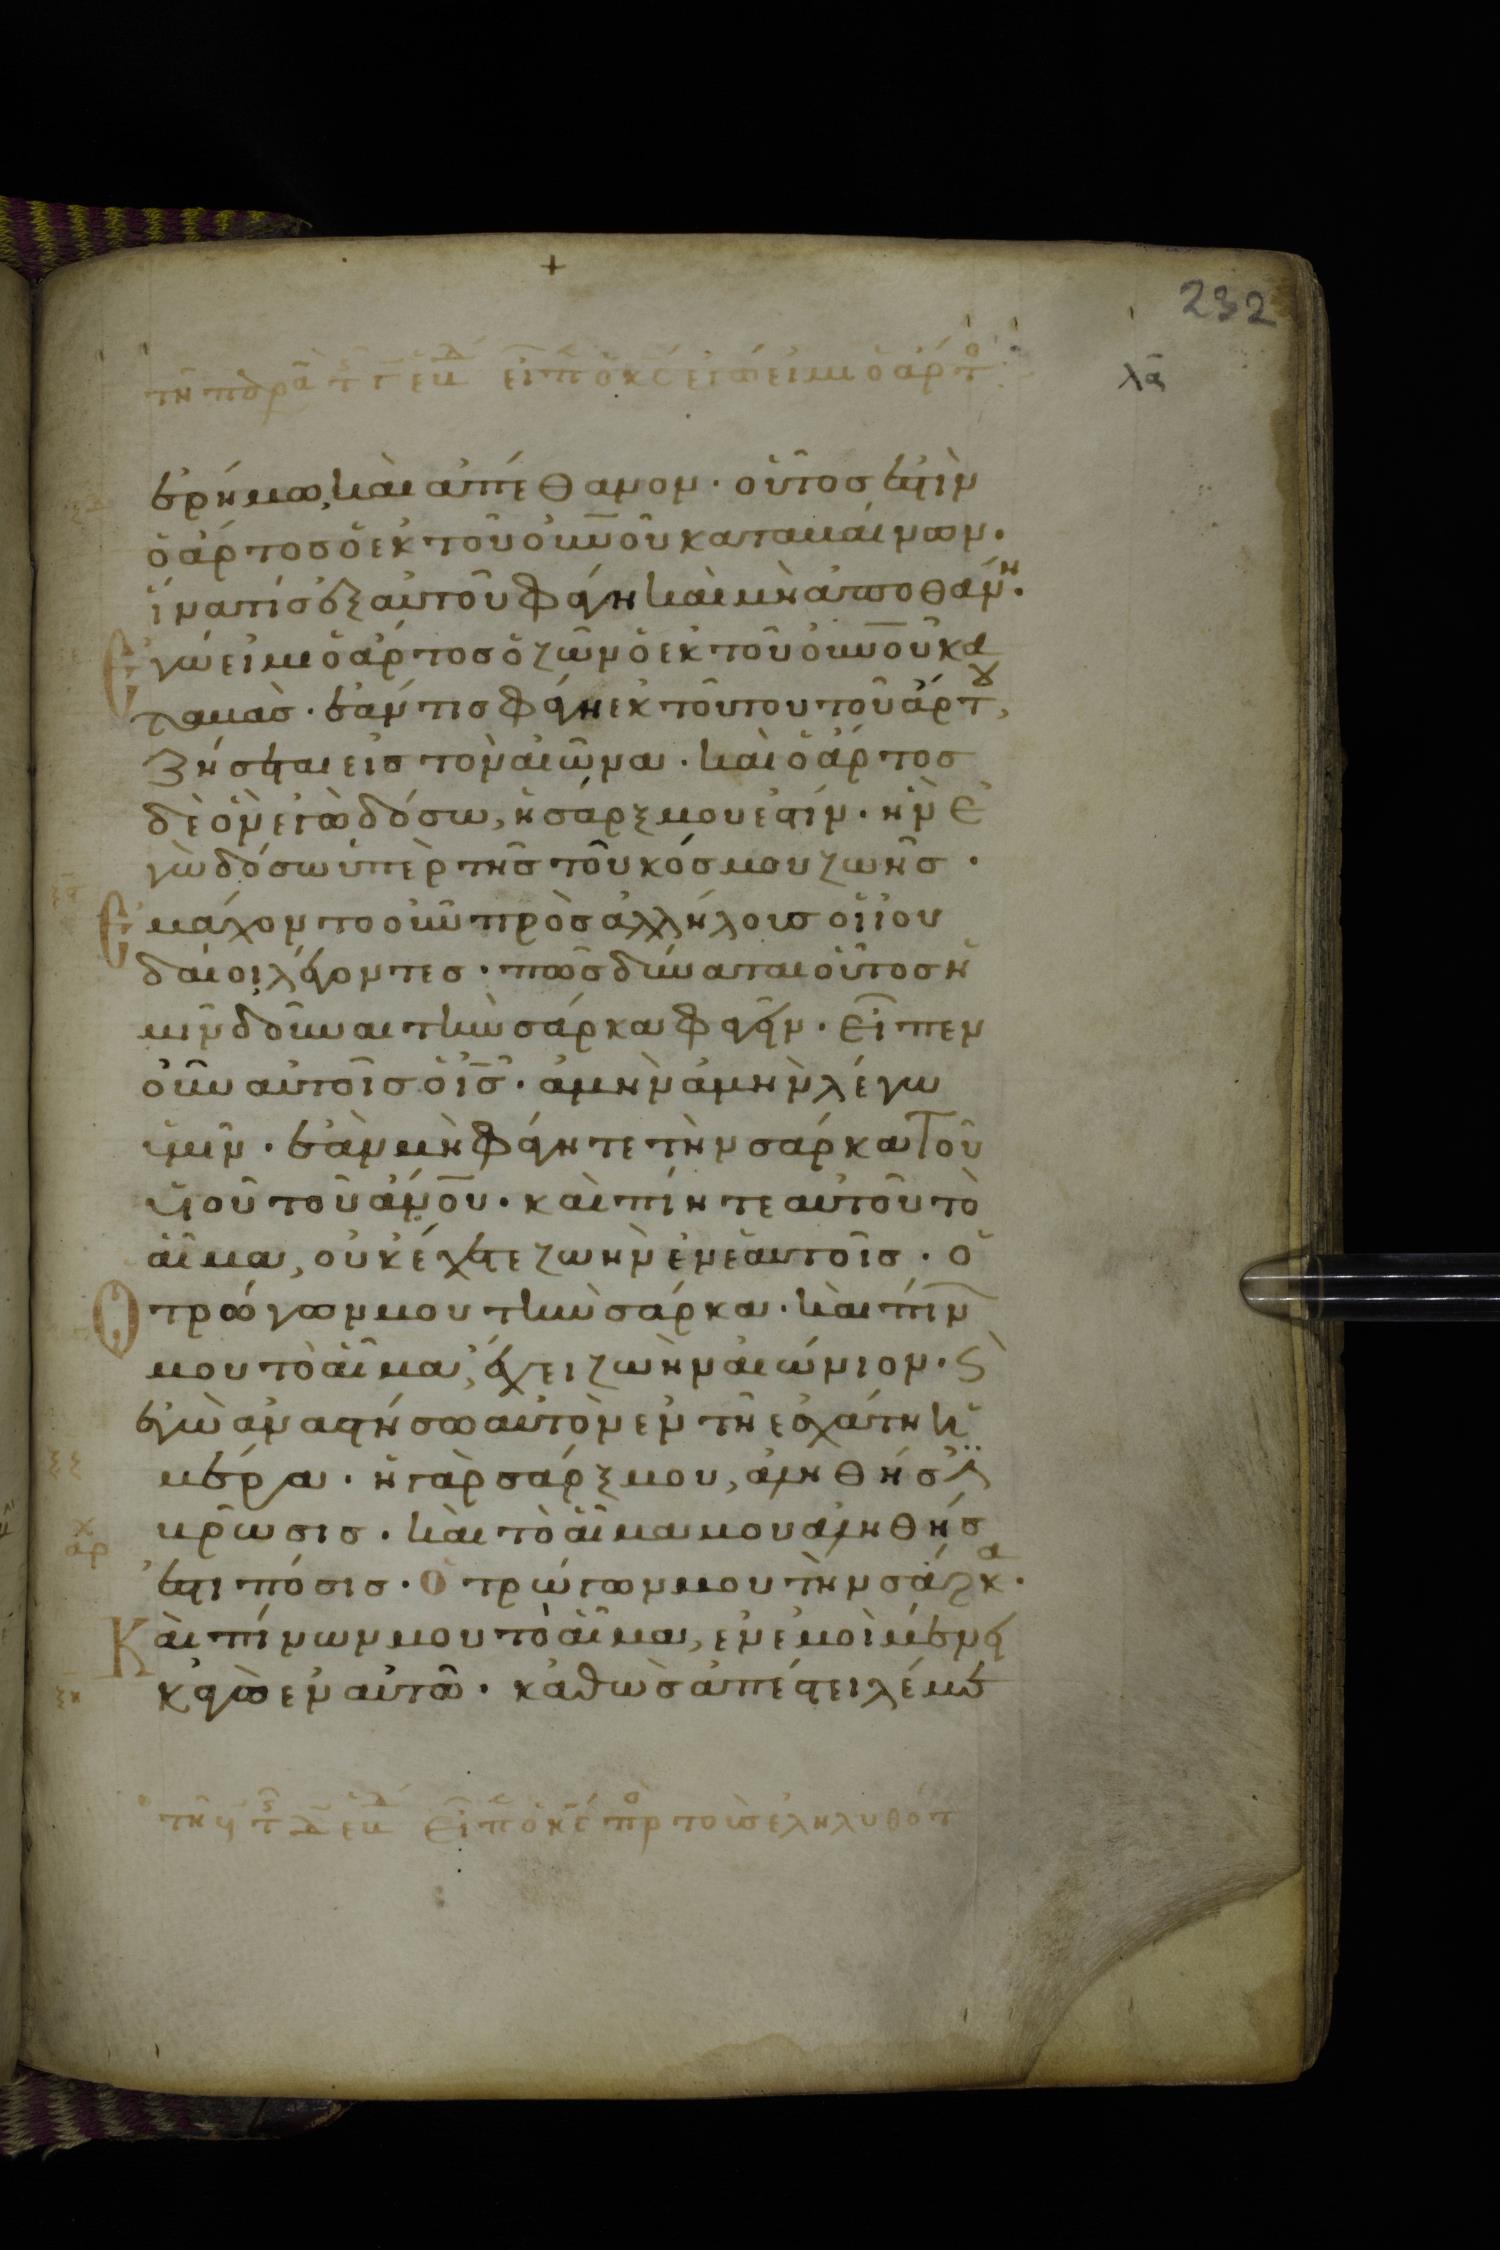 +
232
τῆ παρα
εἶπ ὁ κς ἐγώ εἰμι ὁ ἄρτο
λα
ἐρήμω, καὶ ἀπέθανον· οὗτος ἐστὶν
ὁ ἄρτος ὁ ἐκ τοῦ οὐνοῦ καταβαίνων·
ἵνα τίς ἐξ αὐτοῦ φάγη καὶ μὴ ἀποθάνη·
Ἐγώ εἰμι ὁ ἄρτος ὁ ζῶν ὁ ἐκ τοῦ οὐνοῦ κα
ταβάς· ἐάν τις φάγη ἐκ τούτου τοῦ ἄρτου,
ζήσεται εἰς τὸν αἰῶνα· καὶ ὁ ἄρτος
δὲ ὃν ἐγὼ δώσω, ἡ σάρξ μου ἐστίν· ἣν ἐ
γὼ δώσω ὑπὲρ τῆς τοῦ κόσμου ζωῆς·
Ἐμάχοντο οὖν πρὸς ἀλλήλους οἱ ἰου
δαῖοι λέγοντες· πῶς δύναται οὗτος ἡ
μῖν δοῦναι τὴν σάρκα φαγεῖν· εἶπεν
οὖν αὐτοῖς ὁ ις· ἀμὴν ἀμὴν λέγω
ὑμῖν· ἐὰν μὴ φάγητε τὴν σάρκα τοῦ
υἱοῦ τοῦ ἀνου· καὶ πίητε αὐτοῦ τὸ
αἷμα, οὐκ ἔχετε ζωὴν ἐν ἑαυτοῖς· ὁ
Ο τρώγων μου τὴν σάρκα· καὶ πίν
μου τὸ αἷμα, ἔχει ζωὴν αἰώνιον· ϛ
ἐγὼ ἀναστήσω αὐτὸν ἐν τῆ ἐσχάτη ἡ
μέρα· ἡ γὰρ σάρξ μου, ἀληθής ἐ
βρῶσις· καὶ τὸ αἷμα μου ἀληθής
ἐστι πόσις· Ὁ τρώγων μου τὴν σάρκα·
Καὶ πίνων μου τὸ αἷμα, ἐν ἐμοὶ μένει
κἀγὼ ἐν αὐτῶ· καθὼς ἀπέστειλέ με
εἶπ ὁ κς πρ τοὺς ἐληλυθότ